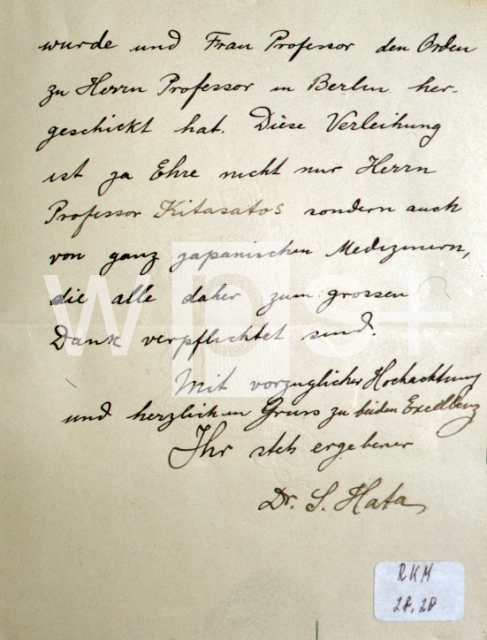 wurde und Frau Professor den Orden
zu Herrn Professor in Berlin her-
geschickt hat. Diese Verleihung
ist ja Ehre nicht nur Herrn
Professor Kitasatos sondern auch
von ganz japanischen Medizinern,
die alle daher zum grossen
Dank verpflichtet sind.
Mit vorzuglicher Hochachtung
und herzlichen Gruss zu beiden Excellenz
Ihr stets ergebener
Dr. S. Hata
wps+
RKM
28.28